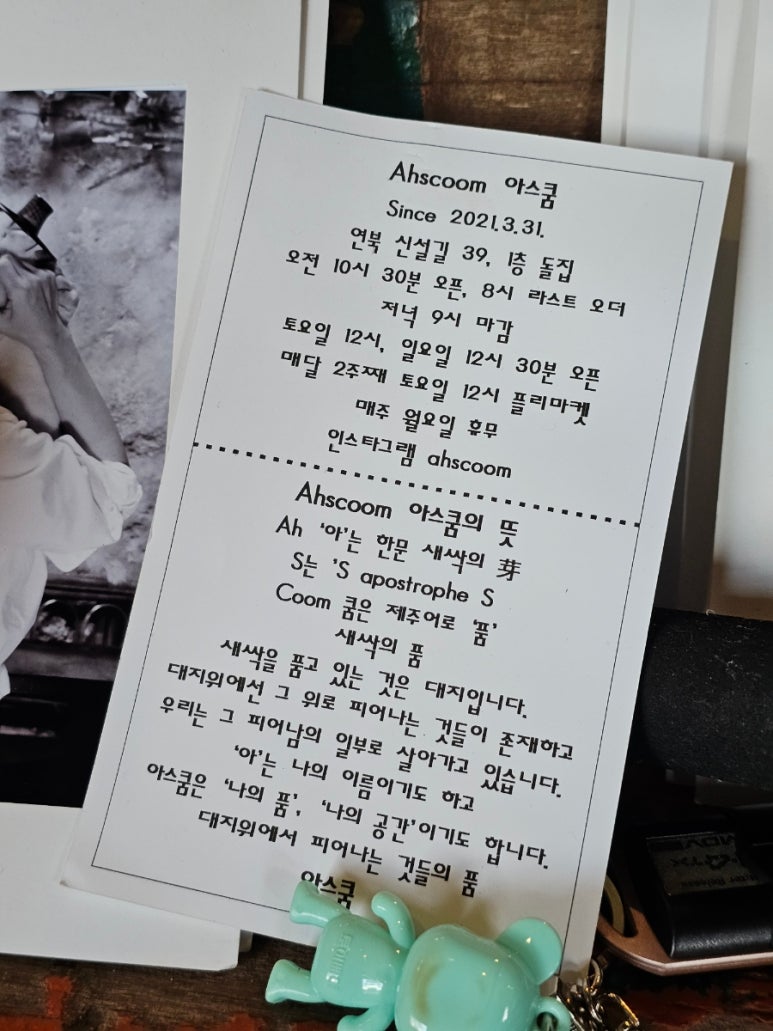 Ahscoom 아스쿰
Since 2021.3.31.
연북 신설길 39, 1층 돌집
오전 10시 30분 오픈, 8시 라스트 오더
저녁 9시 마감
토요일 12시, 일요일 12시 30분 오픈
매달 2주째 토요일 12시 플리마켓
매주 월요일 휴무
인스타그램 ahscoom
Ahscoom 아스쿰의 뜻
Ah '아'는 한문 새싹의 芽
S는 'S apostrophe S
Coom 쿰은 제주어로 '품'
새싹의 품
새싹을 품고 있는 것은 대지입니다.
대지위에선 그 위로 피어나는 것들이 존재하고
우리는 그 피어남의 일부로 살아가고 있습니다.
'아'는 나의 이름이기도 하고
아스쿰은 '나의 품', '나의 공간'이기도 합니다.
대지위에서 피어나는 것들의 품
아스쿰